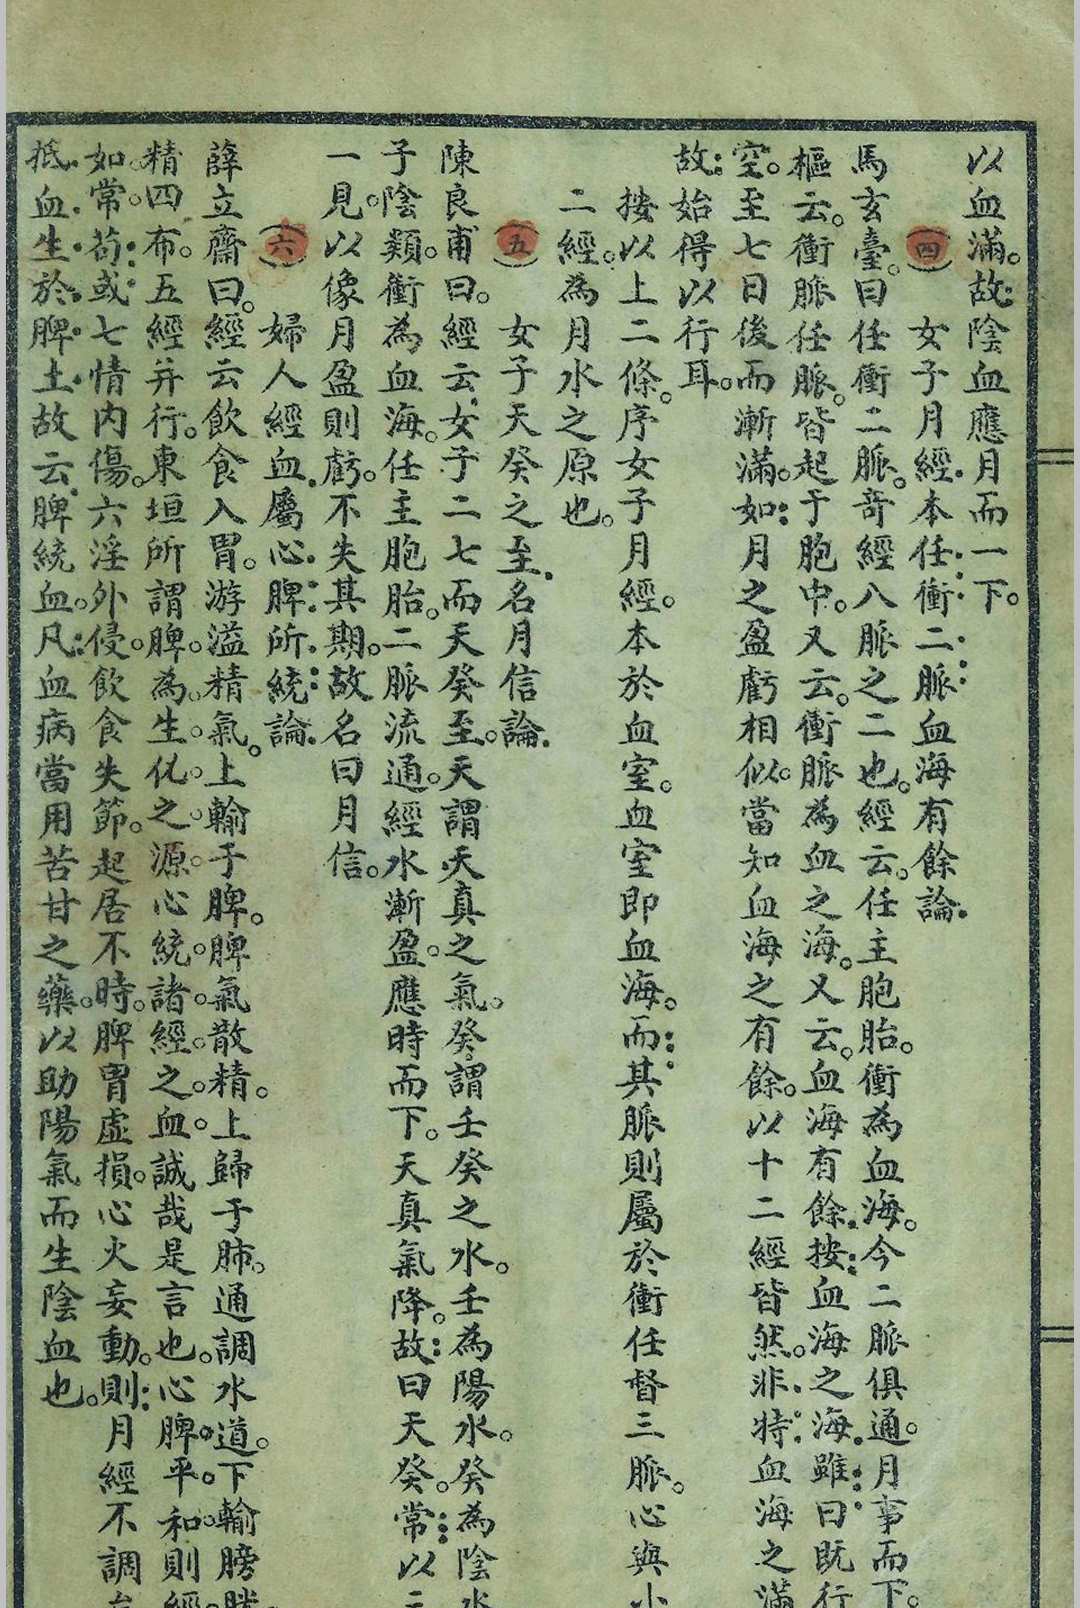 以血滿。故陰血應月而一下。
(四)女子月經本任衝二脈血海有餘論
馬玄臺曰任衝二脈。奇經八脈之二也。經云。任主胞胎。衝為血海。今二脈俱通。月事而下。
樞云。衝脈任脈。皆起于胞中。又云。衝脈為血之海。又云。血海有餘。按血海之海。雖曰既行
空。至七日後而漸滿。如月之盈虧相似。當知血海之有餘。以十二經皆然。非特血海之滿
故始得以行耳。
按以上二條。序女子月經。本於血室。血室即血海。而其脈則屬於衝任督三脈。心與小
二經。為月水之原也。
(五)女子天癸之至名月信論
陳良甫曰。經云女子二七而天癸至。天謂天真之氣。癸謂壬癸之水。壬為陽水。癸為陰水
子陰類。衝為血海。任主胞胎。二脈流通。經水漸盈。應時而下。天真氣降。故曰天癸。常以三
一見。以像月盈則虧。不失其期。故名曰月信。
(六)婦人經血屬心脾所統論
薛立齋曰。經云飲食入胃。游溢精氣。上輸于脾。脾氣散精。上歸于肺。通調水道。下輸膀胱。
精四布。五經并行。東垣所謂脾為生化之源心統諸經之血。誠哉是言也。心脾平和則經
如常。苟或七情內傷。六淫外侵。飲食失節。起居不時。脾胃虛損。心火妄動。則月經不調矣
抵血生於脾土故云脾統血。凡血病當用苦甘之藥。以助陽氣而生陰血也。